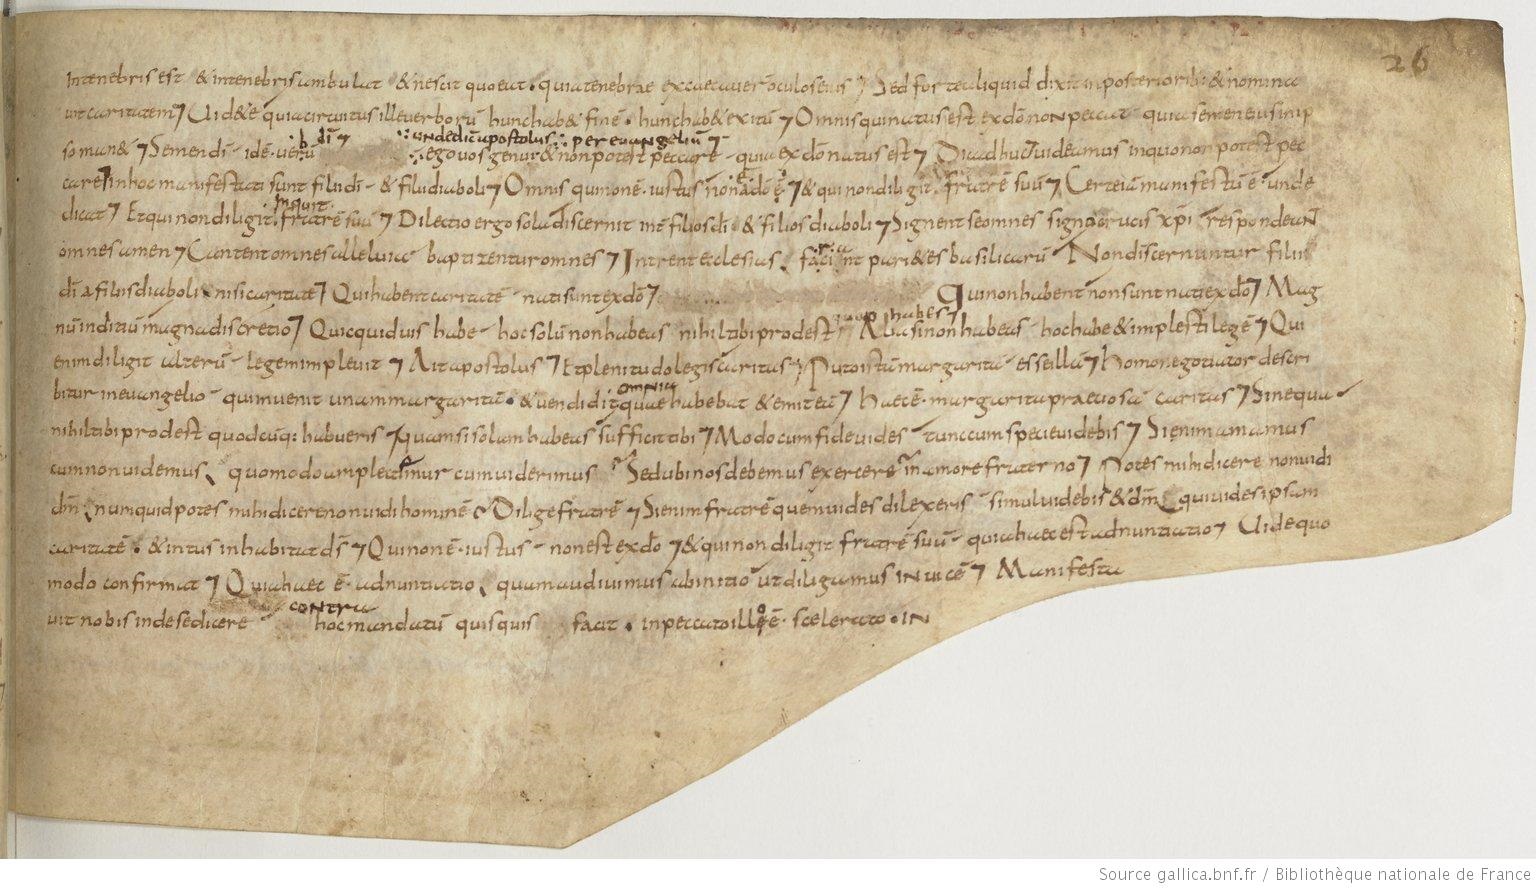 26
intenebris est & intenebris ambulat & nescit quo eat · quia tenebrae excaecaver̄ oculos eius Sed forte aliquid dixit in posteriorib; & nomina
vit caritatem Uide & ē quia circuitus ille verborū hunc hab& finē · hunc hab& exitū Omnis qui natus est ex dō non peccat quia semen eius in ip
·b· dī̄ ∵ unde dic̄ apostolus ∵ per evangeliū
so man& Semen dī · id ē verū ∵ ego vos genui & non potest peccare · quia ex dō natus est Dicad huc videamus in quo non potest pec
care In hoc manifestati sunt filii dī · & filii diaboli Omnis qui non ē iustus non a dō ē & qui non diligit fratrē suū Certe iā manifestū ē unde
inquit
dicat Et qui non diligit fratrē suū Dilectio ergo sola discernit int̄ filios dī · & filios diaboli Signent se omnes signo crucis xp̄i respondeant
omnes amen Cantent omnes alleluia baptizentur omnes Intrent ecclesias faciant pari&es basilicarū Non discernuntur filii
dī a filiis diaboli nisi caritate Qui habent caritatē nati sunt ex dō Qui non habent non sunt nati ex dō Mag
habes
nū inditiū magna discretio Quicquid vis habe hoc solū non habeas nihil tibi prodest Alia si non habeas hoc habe & implesti legē Qui
enim diligit alterū legem implevit Ait apostolus Et plenitudo legis caritas Puto istā margaritā esse illā homo negotiator descri
omnia
bitur in evangelio qui invenit unam margaritā · & vendidit quae habebat & emit eā Haec ē margarita praetiosa caritas Sine qua
nihil tibi prodest quodcūq; habueris quam si solam habeas sufficit tibi Modo cum fide vides tunc cum specie videbis Si enim amamus
cum non videmus quomodo amplectemur cum viderimus Sed ubi nos debemus exercere in amore fraterno Potes mihi dicere non vidi
dm̄ numquid potes mihi dicere non vidi hominē Dilige fratrē Si enim fratrē quem vides dilexeris simul videbis & dm̄ qui vides ipsam
caritatē · & intus inhabitat ds̄ Qui non ē iustus non est ex dō & qui non diligit fratrē suū quia haec est adnuntiatio Uide quo
modo confirmat Quia haec ē adnuntiatio quam audivimus ab initio ut diligamus invicē Manifesta
contra
vit nobis inde se dicere hoc mandatū quisquis facit · in peccato illo ē scelerato · in
Source gallica.bnf.fr / Bibliothèque nationale de France